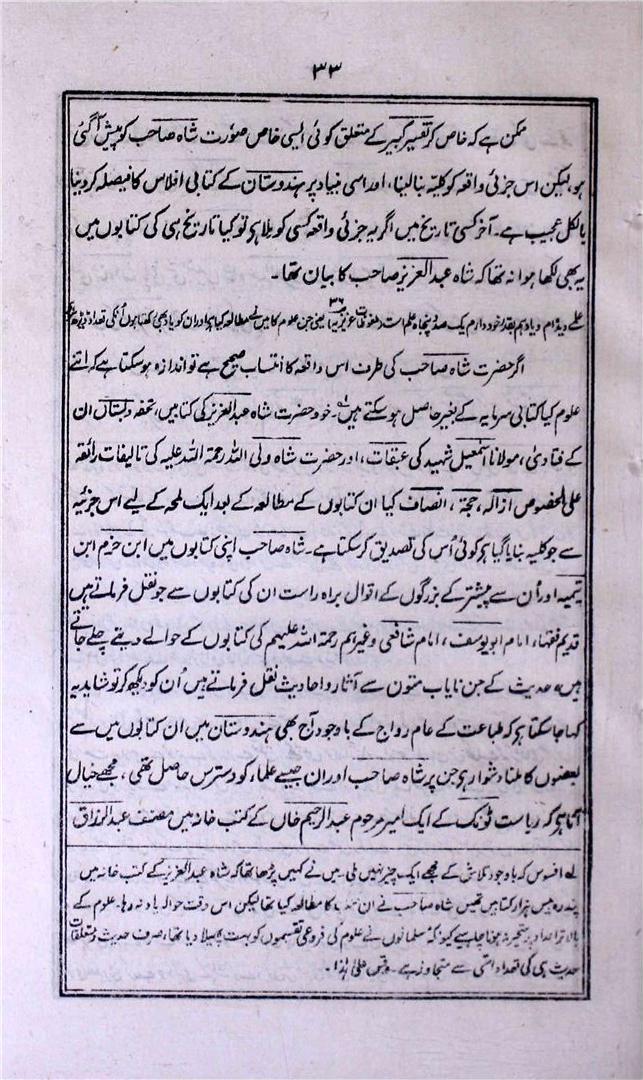 ۳۳
ممکن ہے کہ خاص کر تفسیر کبیر کے متعلق کوئی ایسی خاص صورت شاہ صاحب کو پیش آگئی
ہو، لیکن اس جزئی واقعہ کو کلیۃ بنا لینا، اور اسی بنیاد پر ہندوستان کے کتابی افلاس کا فیصلہ کر دینا
بالکل عجیب ہے۔ آخر کسی تاریخ میں اگر یہ جزئی واقعہ کسی کو ملا ہو تو کیا تاریخ ہی کی کتابوں میں
یہ بھی لکھا ہوا نہ تھا کہ شاہ عبد العزیز صاحب کا بیان تھا۔
یاد ہم بقدر خود دارم یک صد و پنجاہ علم است (ملفوظات عزیزیہ) یعنی جن علوم کا میں نے مطالعہ کیا ہو اور ان کو یاد بھی رکھتا ہوں اُنکی تعداد
اگر حضرت شاہ صاحب کی طرف اس واقعہ کا انتساب صحیح ہے تو اندازہ ہو سکتا ہے کہ اتنے
علوم کیا کتابی سرمایہ کے بغیر حاصل ہو سکتے ہیں۔ خود حضرت شاہ عبد العزیز کی کتابیں، تحفہ و بستاں ان
کے فتاویٰ، مولانا اسمٰعیل شہید کی عبقات، اور حضرت شاہ ولی اللہ رحمۃ اللہ علیہ کی تالیفات رائقہ
علی الخصوص ازالہ، حجۃ، انصاف کیا ان کتابوں کے مطالعہ کے بعد ایک لمحہ کے لیے اس جزئیہ
سے جو کلیہ بنایا گیا ہو کوئی اُس کی تصدیق کر سکتا ہے۔ شاہ صاحب اپنی کتابوں میں ابن حزم ابن
تیمیہ اور اُن سے پیشتر کے بزرگوں کے اقوال براہ راست ان کی کتابوں سے جو نقل فرماتے ہیں
قدیم فقہاء، امام ابو یوسف، امام شافعی وغیرہم رحمۃ اللہ علیہم کی کتابوں کے حوالے دیتے چلے جاتے
ہیں، حدیث کے جن نایاب متون سے آثار و احادیث نقل فرماتے ہیں اُن کو دیکھ کر تو شاید یہ
کہا جا سکتا ہو کہ طباعت کے عام رواج کے باوجود آج بھی ہندوستان میں ان کتابوں میں سے
بعضوں کا ملنا دشوار ہو جن پر شاہ صاحب اور ان جیسے علماء کو دسترس حاصل تھی، مجھے خیال
آتا ہو کہ ریاست ٹونک کے ایک امیر مرحوم عبد الرحیم خاں کے کتب خانہ میں مصنف عبد الرزاق
لہ افسوس کہ باوجود تلاش کے مجھے ایک چیز نہیں ملی۔ میں نے کہیں پڑھا تھا کہ شاہ عبد العزیز کے کتب خانہ میں
پندرہ بیس ہزار کتابیں تھیں شاہ صاحب نے ان کا مطالعہ کیا تھا لیکن اس وقت حوالہ یاد نہ رہا۔ علوم کے
بالا تعداد پر متحیر نہ ہونا چاہیے کیونکہ مسلمانوں نے علوم کی فروعی تقسیموں کو بہت پھیلا دیا تھا، صرف حدیث و متعلقات
حدیث ہی کی تعداد اسی سے متجاوز ہے۔ وقس علیٰ ہٰذا۔